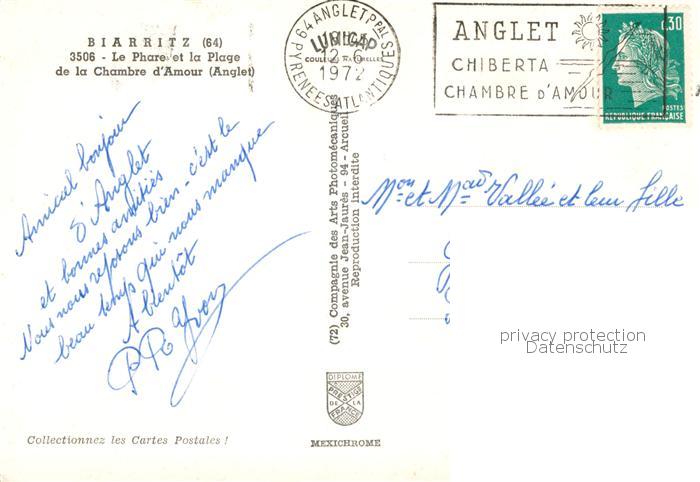 BIARRITZ (64)
3506 - Le Phare et la Plage
de la Chambre d'Amour (Anglet)
Amical bonjour
d'Anglet
et bonnes amitiés
Nous nous reposons bien - c'est le
beau temps qui nous manque
A bientôt
Collectionnez les Cartes Postales !
64 ANGLET PPAL
12-6
1972
PYRENEES ATLANTIQUES
LUMICAP
COULEURS NATURELLES
(72) Compagnie des Arts Photomécaniques
30, avenue Jean-Jaurès - 94 - Arcueil
Reproduction interdite
DIPLOME
PRESTIGE
DE LA
FRANCE
MEXICHROME
ANGLET
CHIBERTA
CHAMBRE D'AMOUR
0,30
POSTES
REPUBLIQUE FRANÇAISE
Mon et Mad Vallée et leur fille
privacy protection
Datenschutz